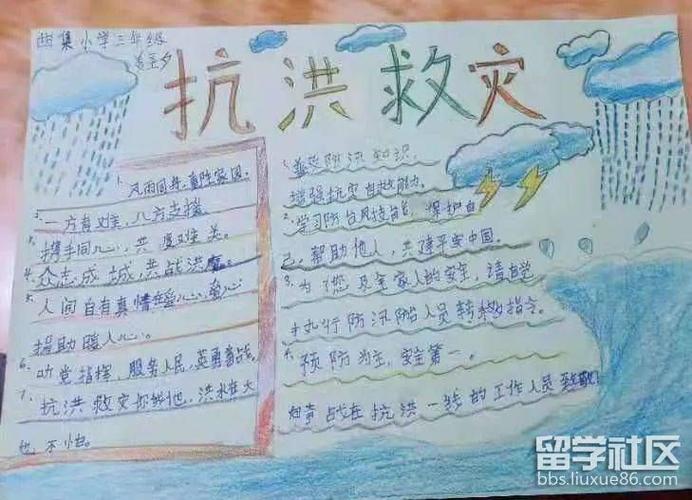 集小学三年级
抗洪救灾
1、风雨同舟,重建家园。
2、一方有难,八方支援
3、携手同心,共度难关。
4、众志成城,共战洪魔。
5、人间自有真情在,
捐助暖人心。
6、听党指挥,服务人民,英勇善战。
7、抗洪救灾你我他,洪水再大
也不怕。
1、普及防汛知识,
增强抗灾自救能力。
2、学习防台风技能,保护自
己,帮助他人,共建平安中国。
3、为了您及全家人的安全,请自觉
执行防汛防台人员转移指令。
4、预防为主,安全第一。
向奋战在抗洪一线的工作人员致敬!
留学社区
bbs.liuxue86.com